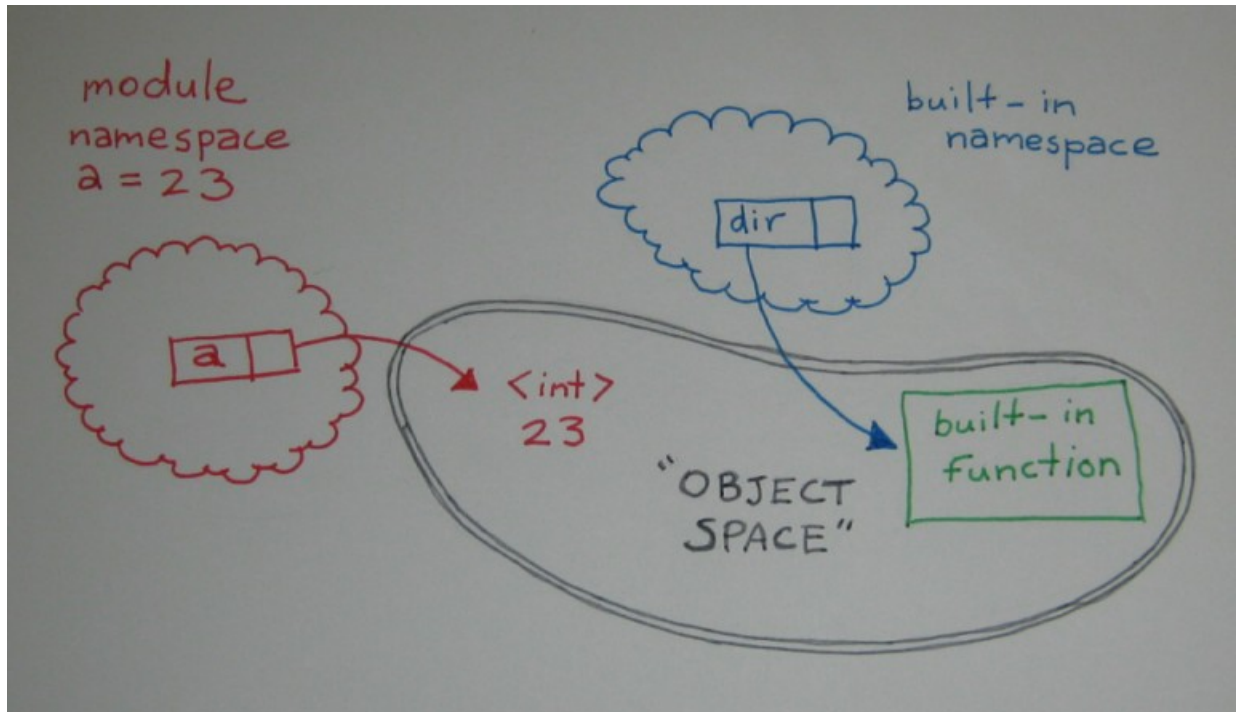 module
namespace
a = 23
built-in
namespace
dir
a
<int>
23
"OBJECT
SPACE"
built-in
function